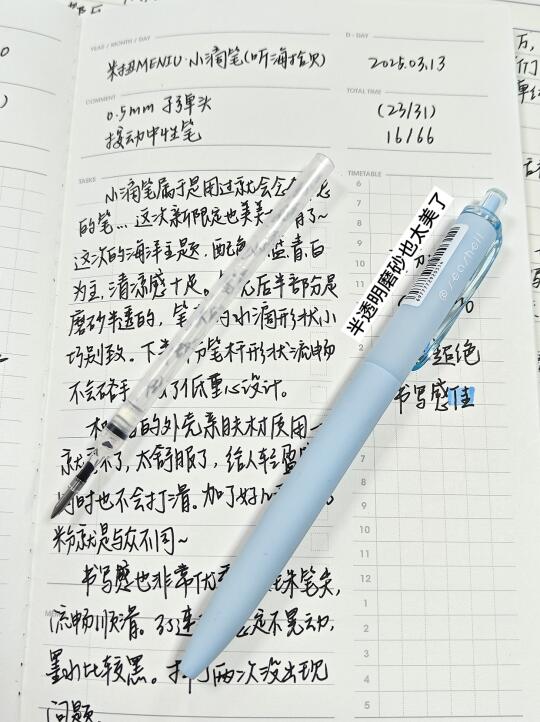 YEAR / MONTH / DAY
米妞MENIU·小滴笔(听海拾贝)
D - DAY
2025.03.13
COMMENT
0.5mm 子弹头
按动中性笔
TOTAL TIME
(23/31)
16/66
TASKS
小滴笔属于是用过就会念
的笔...这次新限定也美美
了~
这次的海洋主题,配色 蓫青白
为主,清凉感十足。 后半部分是
磨砂半透的,笔 水滴形状小
巧别致。下半部分笔杆形状流畅
不会硌手, 了低重心设计。
的外壳亲肤材质用一
就 不了,太舒服了,给人轻
同时也不会打滑。加了好
粉就是与众不同~
书写感也非常优 珠笔尖,
流畅顺滑。 定不晃动,
墨水比较黑。 两次没出现
问题
TIMETABLE
6
7
半透明磨砂也太美了
@/seashell
超绝
书写感佳
9
10
11
12
1
2
3
4
5